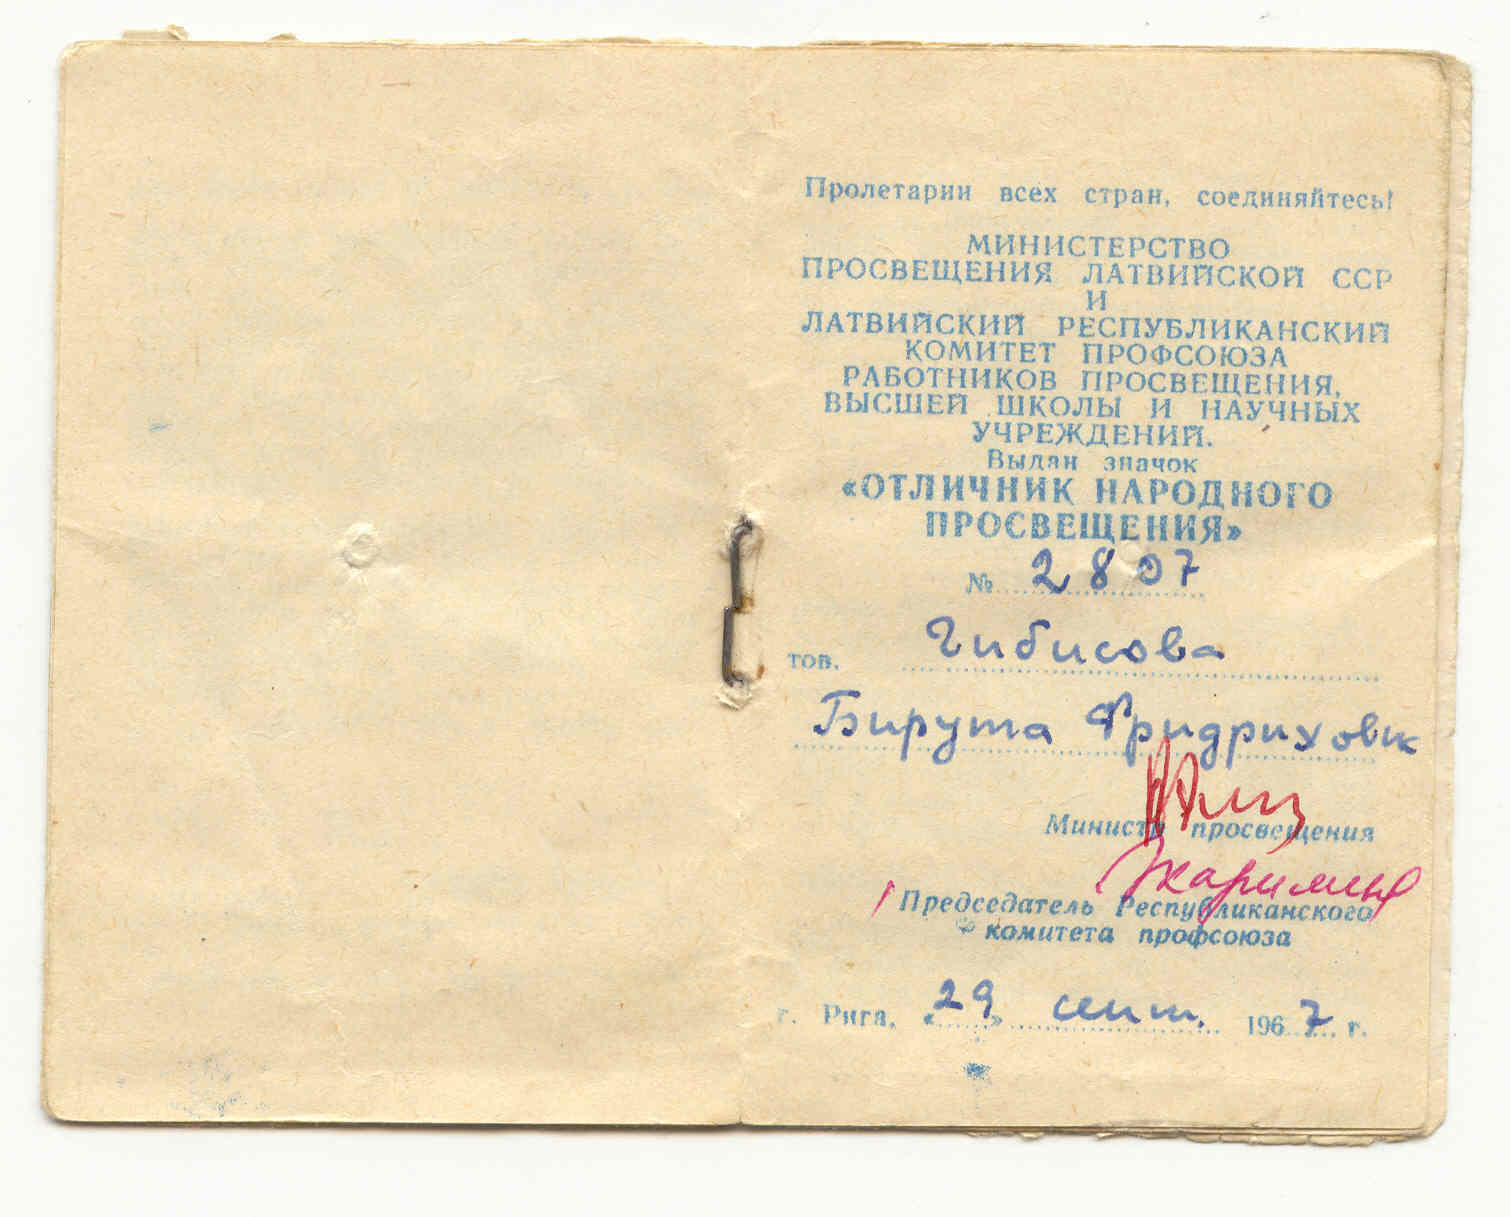 Пролетарии всех стран, соединяйтесь!
МИНИСТЕРСТВО
ПРОСВЕЩЕНИЯ ЛАТВИЙСКОЙ ССР
И
ЛАТВИЙСКИЙ РЕСПУБЛИКАНСКИЙ
КОМИТЕТ ПРОФСОЮЗА
РАБОТНИКОВ ПРОСВЕЩЕНИЯ,
ВЫСШЕЙ ШКОЛЫ И НАУЧНЫХ
УЧРЕЖДЕНИЙ.
Выдан значок
«ОТЛИЧНИК НАРОДНОГО
ПРОСВЕЩЕНИЯ»
№ 2807
тов. Чибисова
Бирута Фридриховн
Министр просвещения
Председатель Республиканского
комитета профсоюза
г. Рига, «29» сент. 1967 г.